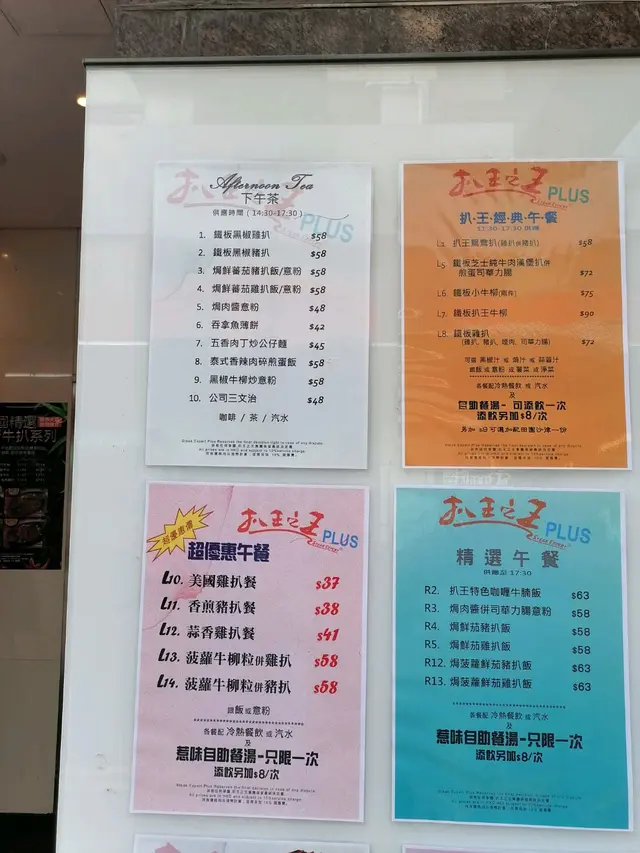 扒王之王 PLUS
Afternoon Tea
下午茶
供應時間 (14:30-17:30)
1. 鐵板黑椒雞扒 $58
2. 鐵板黑椒豬扒 $58
3. 焗鮮蕃茄豬扒飯/意粉 $58
4. 焗鮮蕃茄雞扒飯/意粉 $58
5. 焗肉醬意粉 $48
6. 吞拿魚薄餅 $42
7. 五香肉丁炒公仔麵 $45
8. 泰式香辣肉碎煎蛋飯 $58
9. 黑椒牛柳炒意粉 $58
10. 公司三文治 $48
咖啡 / 茶 / 汽水
扒王之王 PLUS
扒·王·經·典·午·餐
L5 鐵板芝士純牛肉漢堡扒併
煎蛋司華力腸 $72
L6. 鐵板小牛柳 $75
L7. 鐵板扒王牛柳 $90
L8. 鐵板雜扒
(雞扒, 豬扒, 煙肉, 司華力腸) $72
可選 黑椒汁 或 燒汁 或 蒜蓉汁
各餐配冷熱餐飲 或 汽水
及
自助餐湯- 可添飲一次
添飲另加$8/次
超優惠價
扒王之王 PLUS
超優惠午餐
L10. 美國雞扒餐 $37
L11. 香煎豬扒餐 $38
L12. 蒜香雞扒餐 $41
L13. 菠蘿牛柳粒併雞扒 $58
L14. 菠蘿牛柳粒併豬扒 $58
跟飯 或 意粉
各餐配 冷熱餐飲 或 汽水
及
惹味自助餐湯-只限一次
添飲另加$8/次
扒王之王 PLUS
精選午餐
供應至 17:30
R2. 扒王特色咖喱牛腩飯 $63
R3. 焗肉醬併司華力腸意粉 $58
R4. 焗鮮茄豬扒飯 $58
R5. 焗鮮茄雞扒飯 $58
R12. 焗菠蘿鮮茄豬扒飯 $63
R13. 焗菠蘿鮮茄雞扒飯 $63
各餐配 冷熱餐飲 或 汽水
及
惹味自助餐湯-只限一次
添飲另加$8/次